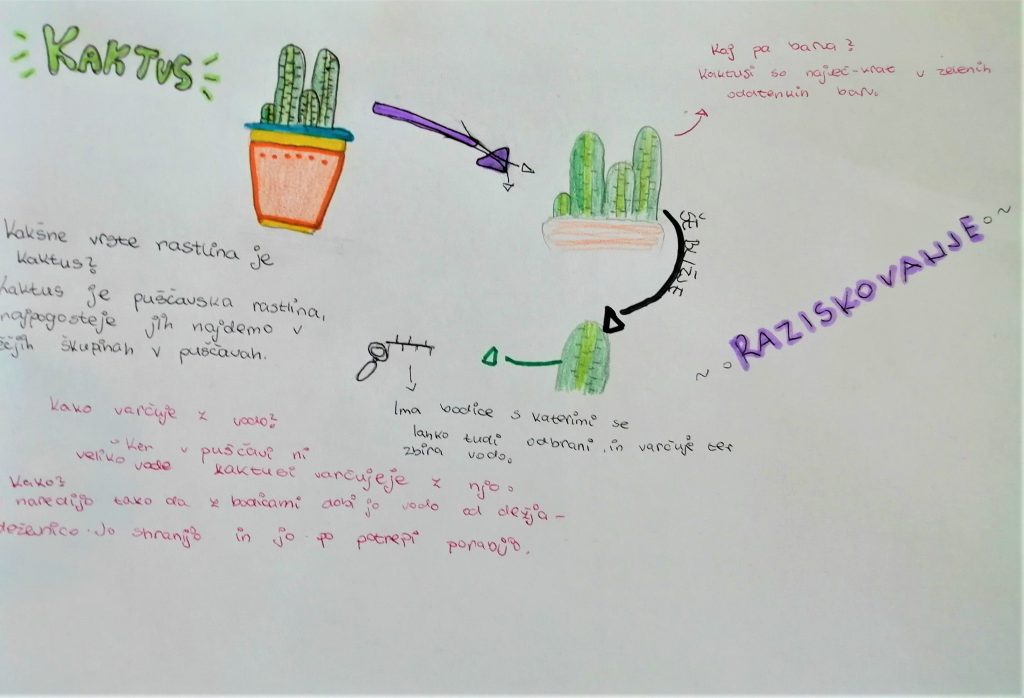 KAKTUS
Kaj pa barva?
Kaktusi so največ-krat v zelenih
odatenkih barv.
ŠE BLIŽJE
~ ° RAZISKOVANJE ° ~
Kakšne vrste rastlina je
kaktus?
Kaktus je puščavska rastlina,
najpogosteje jih najdemo v
škupinah v puščavah.
Ima bodice s katerimi se
lahko tudi odbrani, in varčuje ter
zbira vodo.
Kako varčuje z vodo?
Ker v puščavi ni
veliko vode kaktusi varčujeje z njo.
Kako?
naredijo tako da z bodičami dobijo vodo od dežja-
deževnico. Jo shranijo in jo po potrepi porabijo.